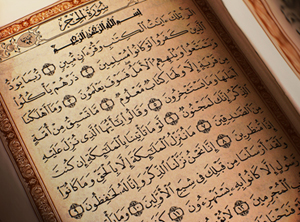 سُورَةُ الحِجْرِ
بِسْمِ اللَّهِ الرَّحْمَٰنِ الرَّحِيمِ
تِلْكَ ءَايَٰتُ الْكِتَٰبِ وَقُرْءَانٍ مُّبِينٍ ١ رُّبَمَا يَوَدُّ
الَّذِينَ كَفَرُوا لَوْ كَانُوا مُسْلِمِينَ ٢ ذَرْهُمْ يَأْكُلُوا
وَيَتَمَتَّعُوا وَيُلْهِهِمُ الْأَمَلُ فَسَوْفَ يَعْلَمُونَ ٣ وَمَا أَهْلَكْنَا
مِن قَرْيَةٍ إِلَّا وَلَهَا كِتَابٌ مَّعْلُومٌ ٤ مَّا تَسْبِقُ مِنْ أُمَّةٍ
أَجَلَهَا وَمَا يَسْتَـْٔخِرُونَ ٥ وَقَالُوا يَٰأَيُّهَا الَّذِي نُزِّلَ عَلَيْهِ
الذِّكْرُ إِنَّكَ لَمَجْنُونٌ ٦ لَّوْ مَا تَأْتِينَا بِالْمَلَٰئِكَةِ إِن كُنتَ
مِنَ الصَّٰدِقِينَ ٧ مَا نُنَزِّلُ الْمَلَٰئِكَةَ إِلَّا بِالْحَقِّ وَمَا كَانُوا
إِذًا مُّنظَرِينَ ٨ إِنَّا نَحْنُ نَزَّلْنَا الذِّكْرَ وَإِنَّا لَهُ لَحَٰفِظُونَ ٩
وَلَقَدْ أَرْسَلْنَا مِن قَبْلِكَ فِي شِيَعِ الْأَوَّلِينَ ١٠ وَمَا يَأْتِيهِم
مِّن رَّسُولٍ إِلَّا كَانُوا بِهِ يَسْتَهْزِءُونَ ١١